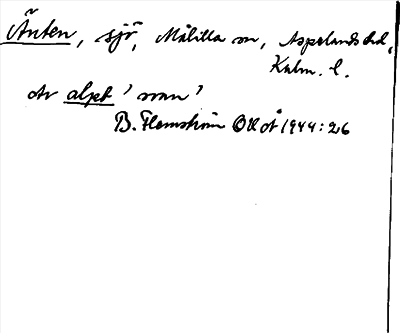 Änten, sjö, Målilla sn, Aspelands hd,
Kalm. l.
Av alpt 'svan'
B. Flemström OUoÅ 1944:26